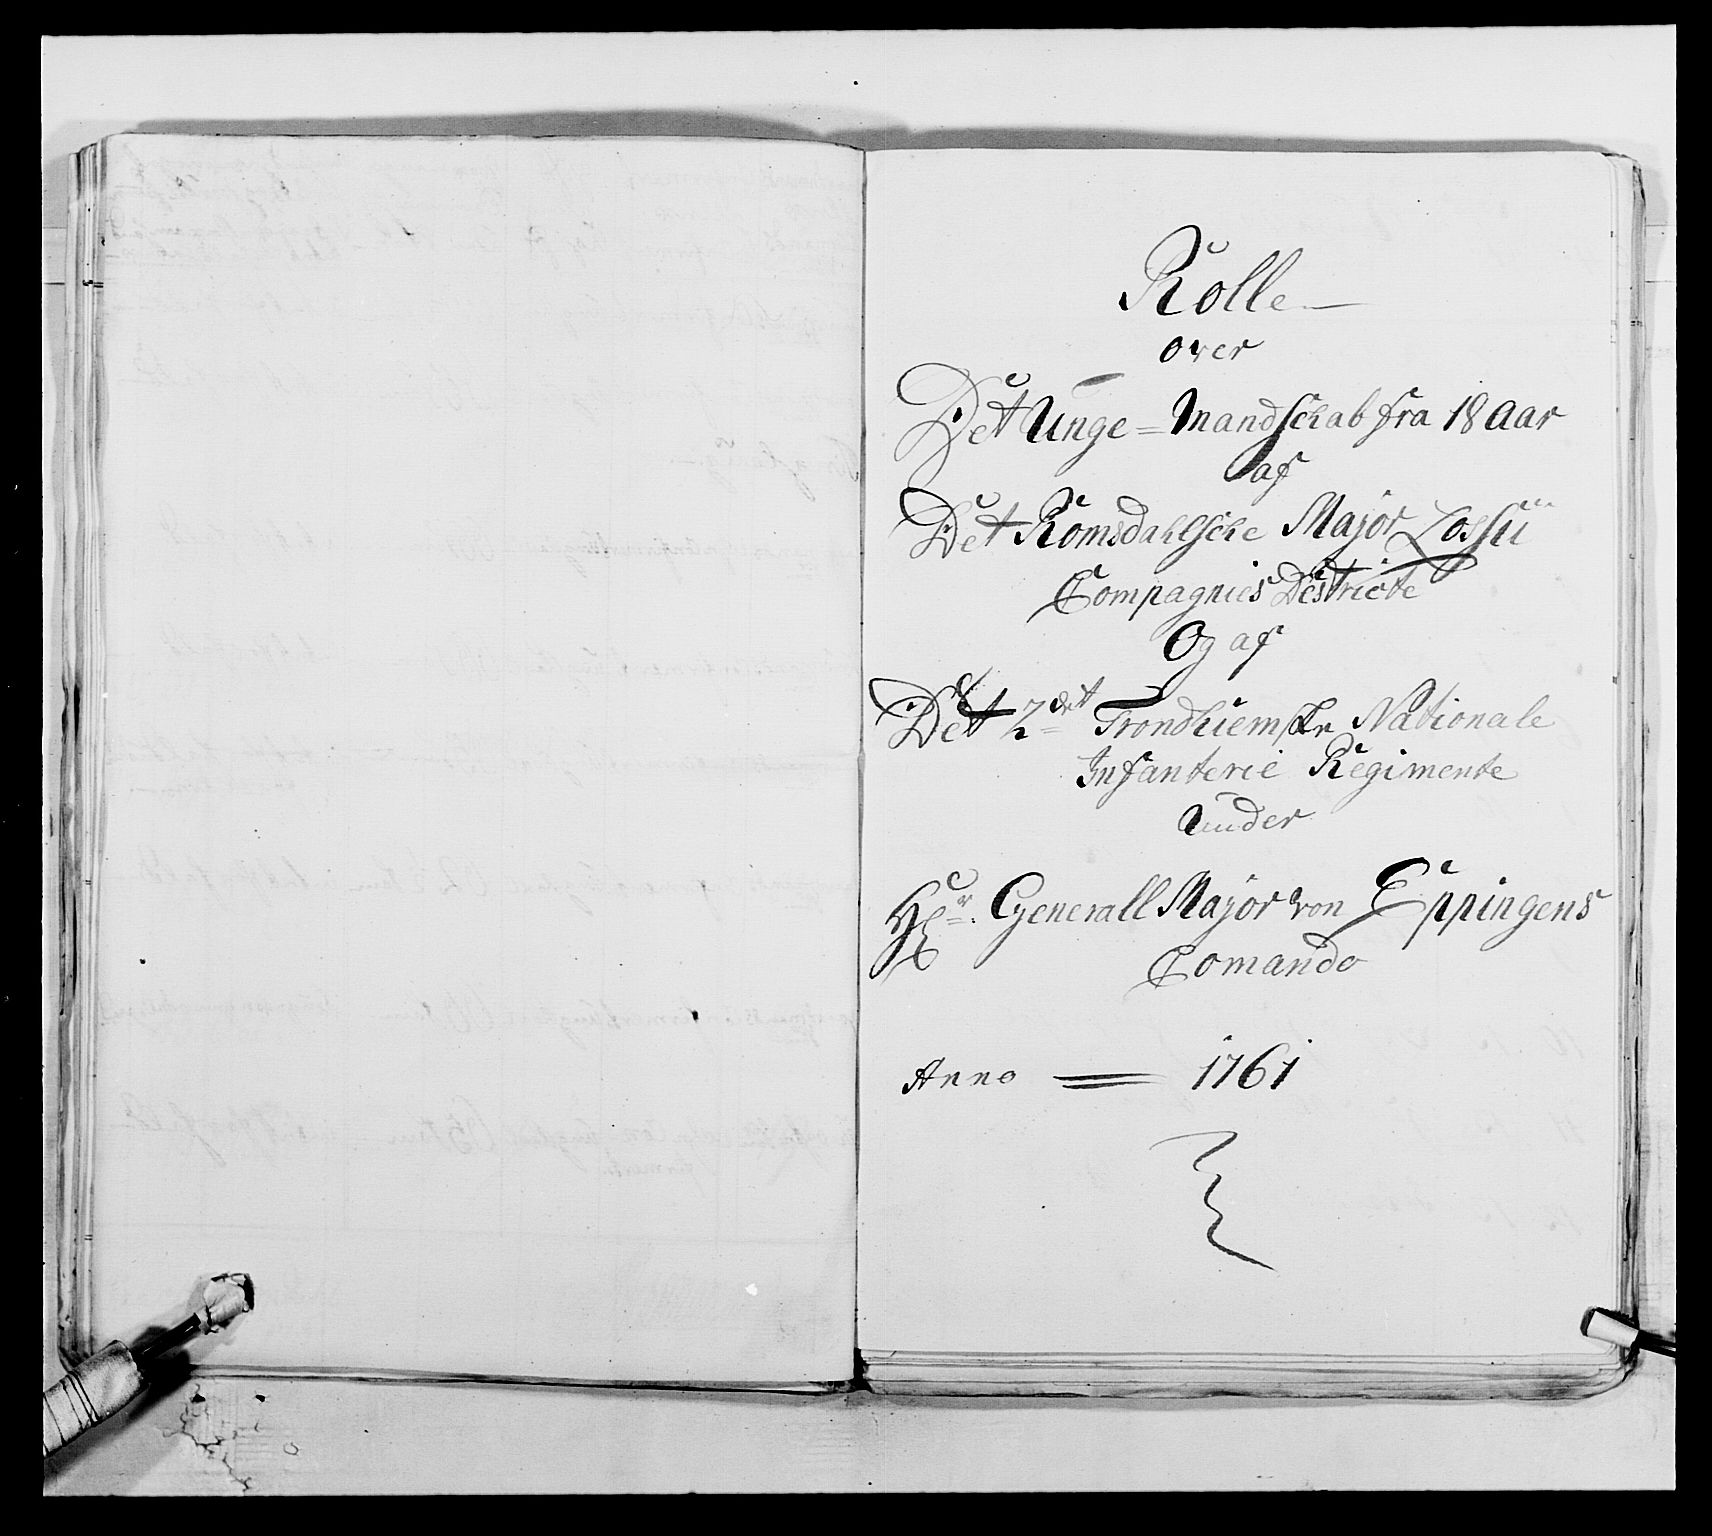 Rolle
over
Det Unge = Mandschab fra 18 Aar
af
Det Romsdahlsche Major Lossii
Compagnies Districte
Og af
Det 2det Trondhiemske Nationale
Infanterie Regimente
Under
Hr. Generall Major von Eppingens
Comando
Anno = 1761